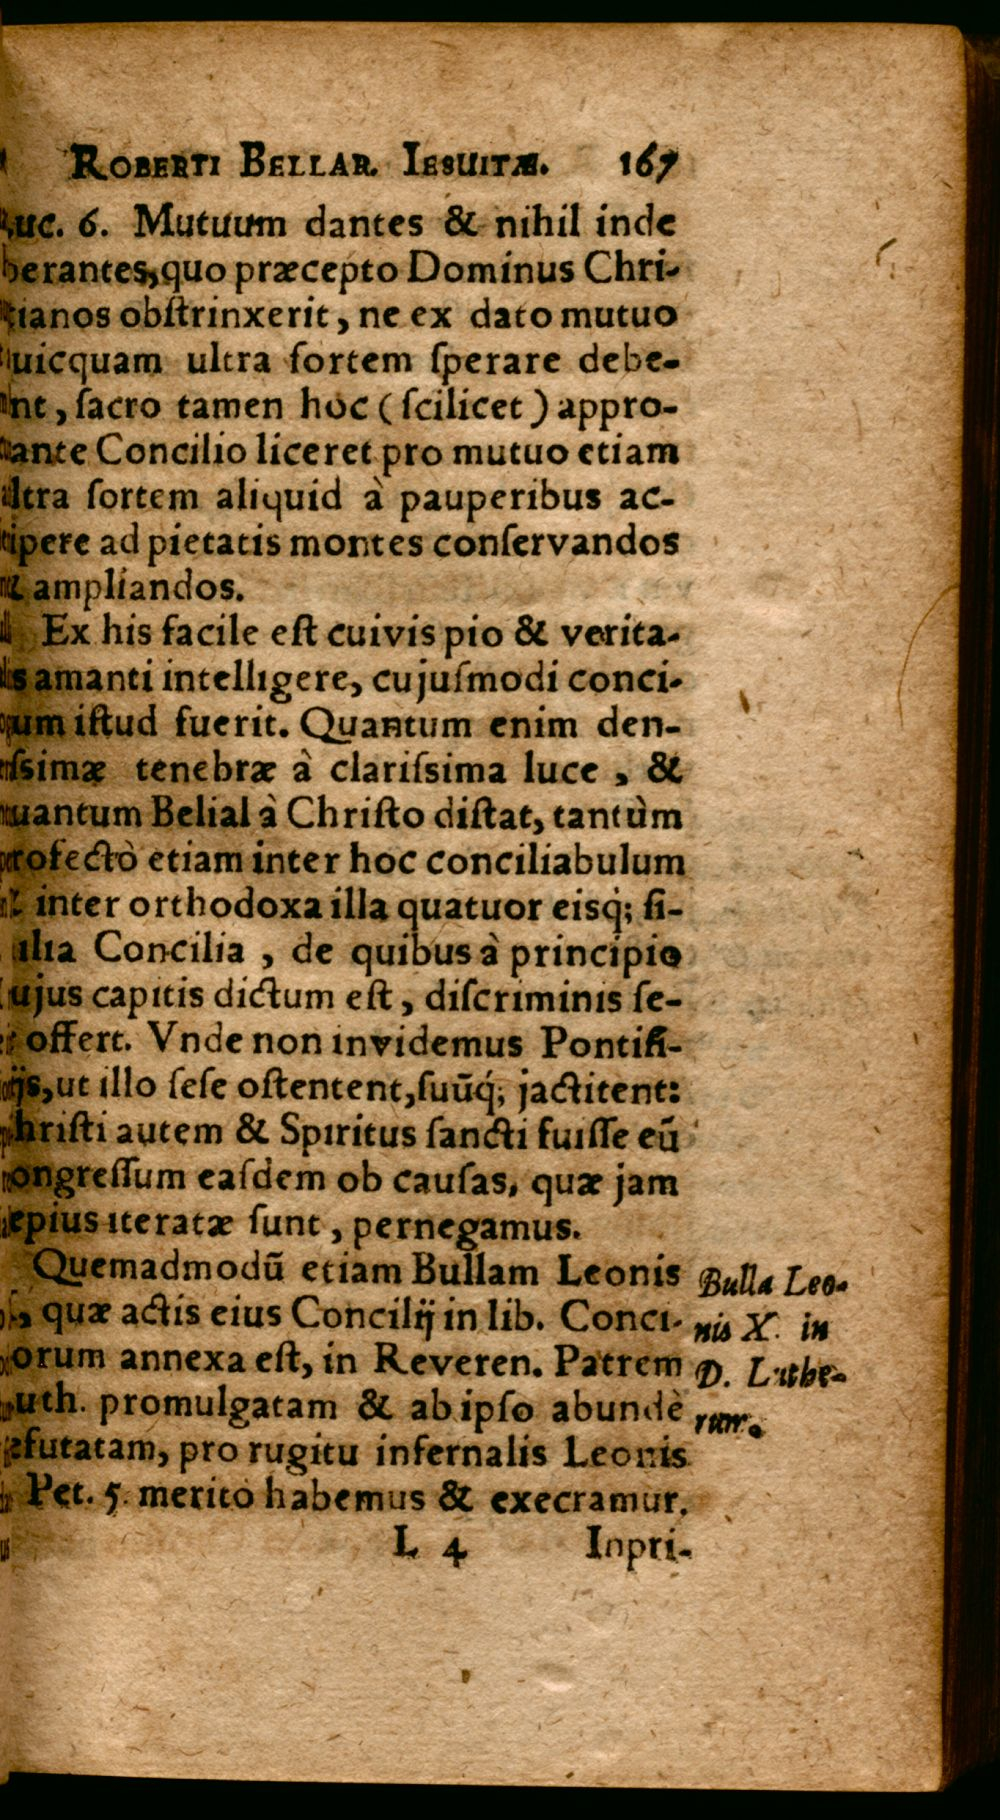 ROBERTI BELLAR. IESUITÆ. 167
uc. 6. Mutuum dantes & nihil inde
perantes, quo præcepto Dominus Chri-
tianos obſtrinxerit, ne ex dato mutuo
uicquam ultra ſortem ſperare debe-
nt, ſacro tamen hoc (ſcilicet) appro-
ante Concilio liceret pro mutuo etiam
ltra ſortem aliquid à pauperibus ac-
ipere ad pietatis montes conſervandos
& ampliandos.
Ex his facile eſt cuivis pio & verita-
s amanti intelligere, cujuſmodi conci-
um iſtud fuerit. Quantum enim den-
ſsimæ tenebræ à clariſsima luce, &
uantum Belial à Chriſto diſtat, tantùm
rofectò etiam inter hoc conciliabulum
& inter orthodoxa illa quatuor eisq́; ſi-
ilia Concilia, de quibus à principio
ujus capitis dictum eſt, diſcriminis ſe-
offert. Vnde non invidemus Pontifi-
ijs, ut illo ſeſe oſtentent, ſuūq́; jactitent:
hriſti autem & Spiritus ſancti fuiſſe eū
ongreſſum eaſdem ob cauſas, quæ jam
epius iteratæ ſunt, pernegamus.
Quemadmodū etiam Bullam Leonis
, quæ actis eius Concilij in lib. Conci-
orum annexa eſt, in Reveren. Patrem
uth. promulgatam & ab ipſo abundè
efutatam, pro rugitu infernalis Leonis
Pet. 5. meritò habemus & execramur.
Bulla Leo-
nis X. in
D. Luthe-
rum.
L 4 Inpri-